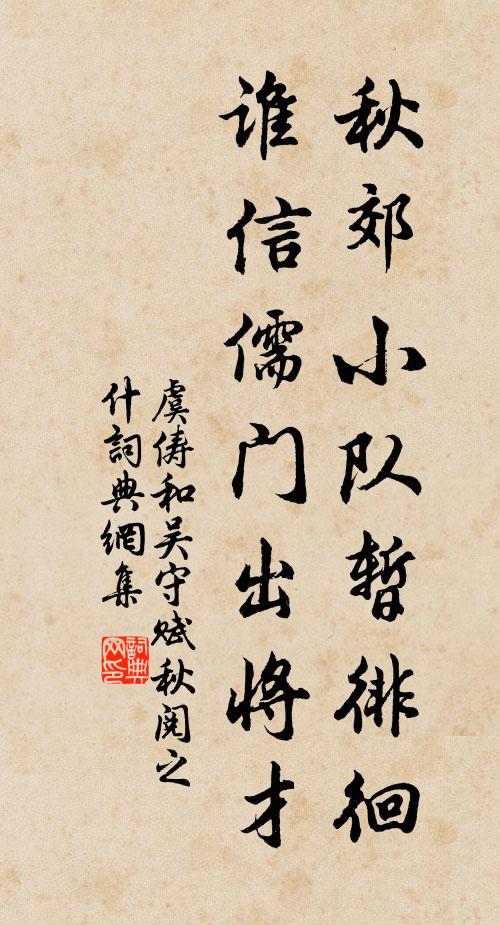 秋郊小队暂徘徊
谁信儒门出将才
虞俦和吴守赋秋阅之
什詞典網集
詞典网印